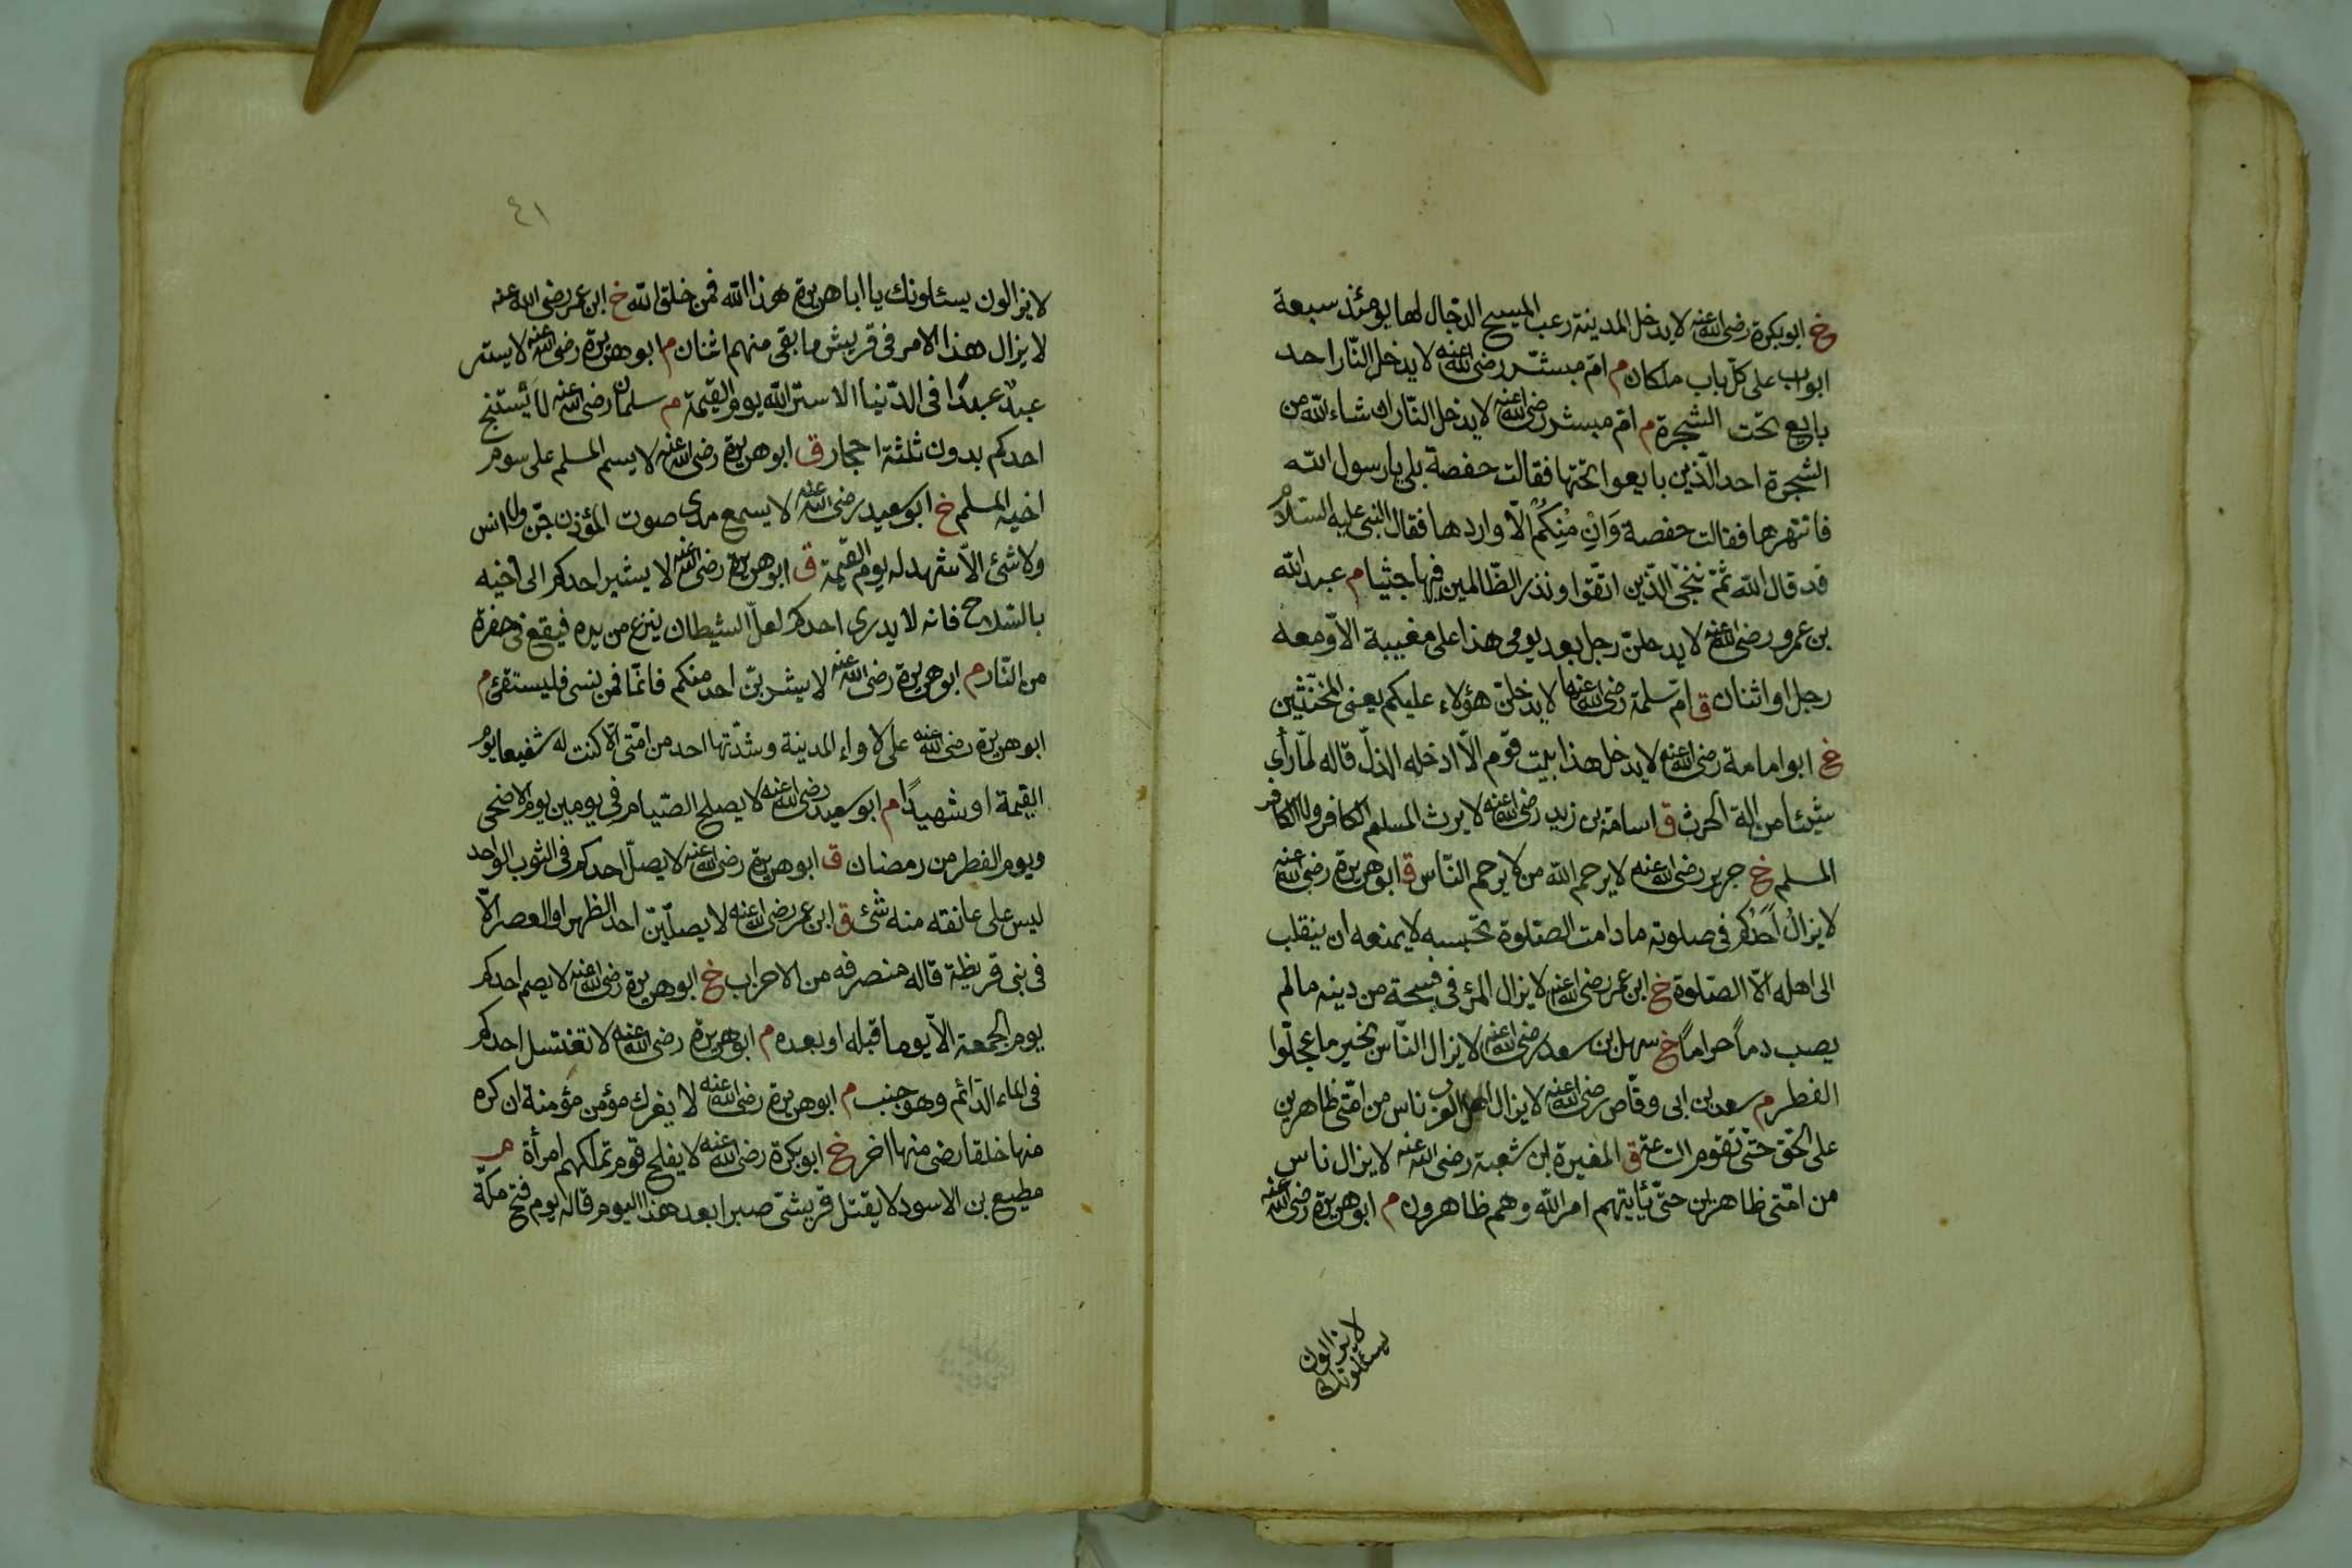 خ ابو بكرة رضى الله عنه لا يدخل المدينة رعب المسيح الدجال لها يومئذ سبعة
ابواب على كلّ باب ملكان م امّ مبشّر رضى الله عنه لا يدخل النّار احد
بايع تحت الشجرة م امّ مبشر رضى الله عنه لا يدخل النّار ان شاء الله من
الشجرة احد الّذين بايعوا تحتها فقالت حفصة بلى يا رسول الله
فانتهرها فقالت حفصة وَاِنْ مِنكُمْ الّا واردها فقال النبى عليه السّلام
قد قال الله ثمّ ننجّى الّذين اتّقوا ونذر الظّالمين فيها جثيا م عبد الله
بن عمرو رضى الله عنه لا يدخلنّ رجل بعد يومى هذا على مغيبة الّا ومعه
رجل او اثنان ق امّ سلمة رضى الله عنها لا يدخلنّ هؤلاء عليكم يعنى المخنّثين
خ ابو امامة رضى الله عنه لا يدخل هذا بيت قوم الّا ادخله الذلّ قاله لمّا رأى
شيئا من الة الحرث ق اسامة بن زيد رضى الله عنه لا يرث المسلم الكافر ولا الكافر
المسلم خ جرير رضى الله عنه لا يرحم الله من لا يرحم النّاس ق ابو هريرة رضى الله عنه
لا يزالُ اَحَدُكُم فى صلوته ما دامت الصّلوة تحبسه لا يمنعه ان ينقلب
الى اهله الّا الصّلوة خ ابن عمر رضى الله عنه لا يزال المرئ فى فسحة من دينه ما لم
يصب دماً حراماً خ سهل بن سعد رضى الله عنه لا يزال النّاس بخير ما عجّلوا
الفطر م سعد بن ابى وقّاص رضى الله عنه لا يزال اهل الغرب ناس من امّتى ظاهرين
على الحّق حتّى تقوم السّاعة ق المغيرة بن شعبة رضى الله عنه لا يزال ناس
من امّتى ظاهرين حتّى يأتيهم امر الله وهم ظاهرون م ابو هريرة رضى الله عنه
لا يزالون
يسئلونك
٤١
لا يزالون يسئلونك يا ابا هريرة هذا الله فمن خلق الله خ ابن عمر رضى الله عنه
لا يزال هذا الامر فى قريش ما بقى منهم اثنان م ابو هريرة رضى الله عنه لا يستر
عبدٌ عبدًا فى الدّنيا الا ستر الله يوم القيمة م سلمان رضى الله عنه لا يستنج
احدكم بدون ثلثة احجار ق ابو هريرة رضى الله عنه لا يسم المسلم على سوم
اخيه المسلم خ ابو سعيد رضى الله عنه لا يسمع مدى صوت المؤذن جّن ولا انس
ولا شئ الّا شهد له يوم القيمة ق ابو هريرة رضى الله عنه لا يشير احدكم الى اخيه
بالسّلاح فانه لا يدرى احدكم لعلّ الشيطان ينزع من يده فيقع فى حفرة
من النّار م ابو هريرة رضى الله عنه لا يشربنّ احد منكم قائمًا فمن نسى فليستقئ م
ابو هريرة رضى الله عنه على لاواء المدينة وشدّتها احد من امّتى الّا كنت له شفيعا يوم
القيمة او شهيدًا م ابو سعيد رضى الله عنه لا يصلح الصّيام فى يومين يوم الاضحى
ويوم الفطر من رمضان ق ابو هريرة رضى الله عنه لا يصلّ احدكم فى الثوب الواحد
ليس على عاتقه منه شئ ق ابن عمر رضى الله عنه لا يصلّينّ احد الظهر او العصر الّا
فى بنى قريظة قاله منصرفه من الاحزاب خ ابو هريرة رضى الله عنه لا يصم احدكم
يوم الجمعة الّا يوما قبله او بعده م ابو هريرة رضى الله عنه لا تغتسل احدكم
فى الماء الدّائم وهو جنب م ابو هريرة رضى الله عنه لا يفرك مؤمن مؤمنة ان كره
منها خلقا رضى منها اخر خ ابو بكرة رضى الله عنه لا يفلح قوم تملكهم امرأة م
مطيع بن الاسود لا يقتل قريشّى صبرا بعد هذا اليوم قاله يوم فتح مكّة